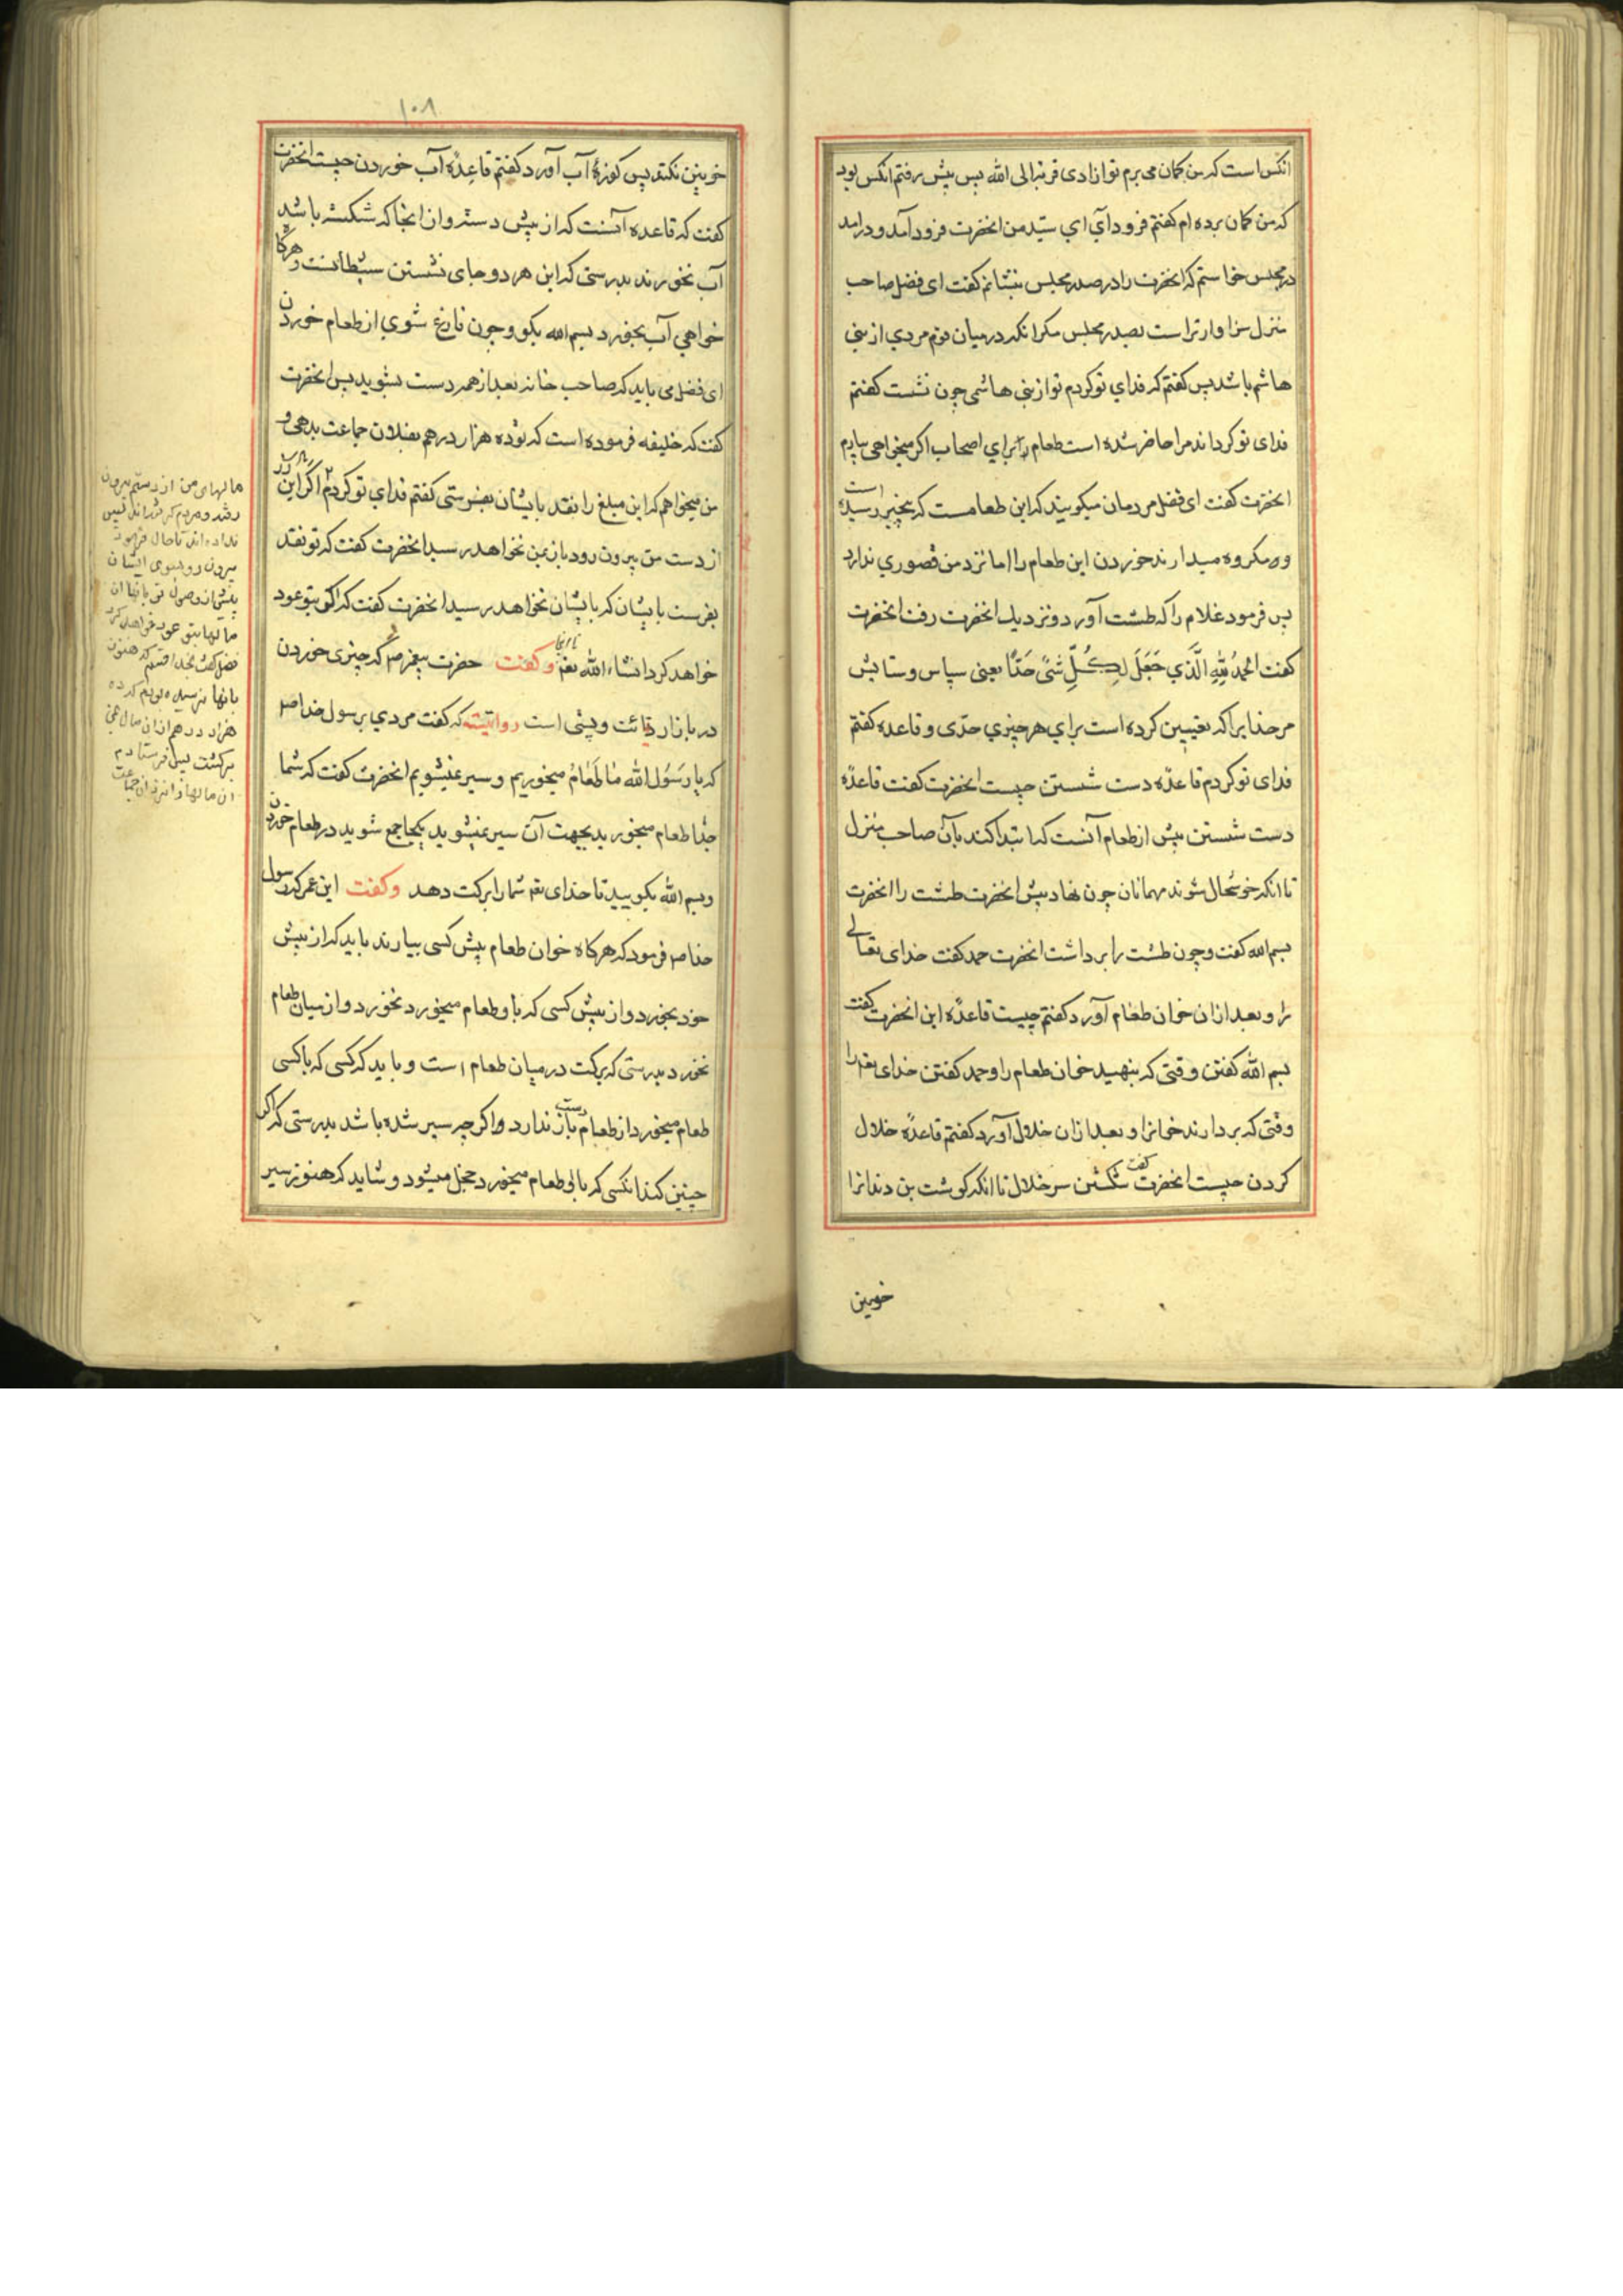 انکس است که من کمان می برم تو ازادی قربة الی الله پس پیش رفتم انکس بود
که من کمان برده ام کفتم فرود آی ای سید من انحضرت فرود آمد و درامد
در مجلس خواستم که انحضرت را در صدر مجلس بنشانم کفت ای فضل صاحب
منزل سزاوارتر است بصدر مجلس مکر انکه در میان قوم مردی از بنی
هاشم باشد پس کفتم که فدای تو کردم تو از بنی هاشمی چون نشست کفتم
فدای تو کرداند مرا حاضر شده است طعام برای اصحاب اکر میخواهی بیارم
انحضرت کفت ای فضل مردمان میکویند که این طعامست که بچیز رسیده است
و مکروه میدارند خوردن این طعام را اما نزد من قصوری ندارد
پس فرمود غلام را که طشت آورد و نزدیک انحضرت رفت انحضرت
کفت الحمد لله الذی جعل لکل شئ حدا یعنی سپاس و ستایش
مر خدایرا که تعیین کرده است برای هر چیزی حدی و قاعده کفتم
فدای تو کردم قاعدهٔ دست شستن چیست انحضرت کفت قاعدهٔ
دست شستن پیش از طعام آنست که ابتدا کند بآن صاحب منزل
تا انکه خوشحال شوند مهمانان چون نهاد پیش انحضرت طشت را انحضرت
بسم الله کفت و چون طشت را برداشت انحضرت حمد کفت خدای تعالی
را و بعد از ان خوان طعام آورد کفتم چیست قاعدهٔ این انحضرت کفت
بسم الله کفتن وقتی که بنهید خوان طعام را و حمد کفتن خدای تعه را
وقتی که بردارند خوانرا و بعد از ان خلال آورد کفتم قاعدهٔ خلال
کردن چیست انحضرت کفت شکستن سر خلال تا انکه کوشت بن دندانرا
خونین
۱۰۸
خونین نکند پس کوزهٔ آب آورد کفتم قاعدهٔ آب خوردن چیست انحضرت
کفت که قاعده آنست که از پیش دسته و ان انجا که شکسته باشد
آب نخورند بدرستی که این هر دو جای نشستن شیطانست و هرکاه
خواهی آب بخورد بسم الله بکو و چون فارغ شوی از طعام خوردن
ای فضل می باید که صاحب خانه بعد از همه دست بشوید پس انحضرت
کفت که خلیفه فرموده است که تو ده هزار درهم بفلان جماعت بدهی و
من میخواهم که این مبلغ را نقد بایشان بفرستی کفتم فدای تو کردم اکر این زر
از دست من بیرون رود باز بمن نخواهد رسید انحضرت کفت که تو نقد
بفرست بایشان که بایشان نخواهد رسید انحضرت کفت که اکر بتو عود
خواهد کرد انشاء الله تعه و کفت حضرت پیغمبر صم که چیزی خوردن
در بازار دنائت و پستی است روایتست که کفت مردی برسول خدا صم
که یا رسول الله ما طعام میخوریم و سیر نمیشویم انحضرت کفت که شما
جدا طعام میخورید بجهت آن سیر نمیشوید یکجا جمع شوید در طعام خوردن
و بسم الله بکویید تا خدای تعه شما را برکت دهد و کفت ابن عمر که رسول
خدا صم فرمود که هرکاه خوان طعام پیش کسی بیارند باید که از پیش
خود بخورد و از پیش کسی که با او طعام میخورد نخورد و از میان طعام
نخورد بدرستی که برکت در میان طعام است و باید که کسی که با کسی
طعام میخورد از طعام دست باز ندارد و اکر چه سیر شده باشد بدرستی که اکر
چنین کند انکسی که با وی طعام میخورد خجل میشود و شاید که هنوز سیر
مالهای من از دستم بیرون
نداده اند تا حال فرمود
بیرون رو بسوی ایشان
پیش از وصول تو بانها ان
مالها بتو عود خواهد کرد
فضل کفت بخدا قسم که هنوز
بانها نرسیده بودم که ده
هزار درهم از ان مال بمن
برکشت پس فرستادم
ان مالها را نزد ان جماعت